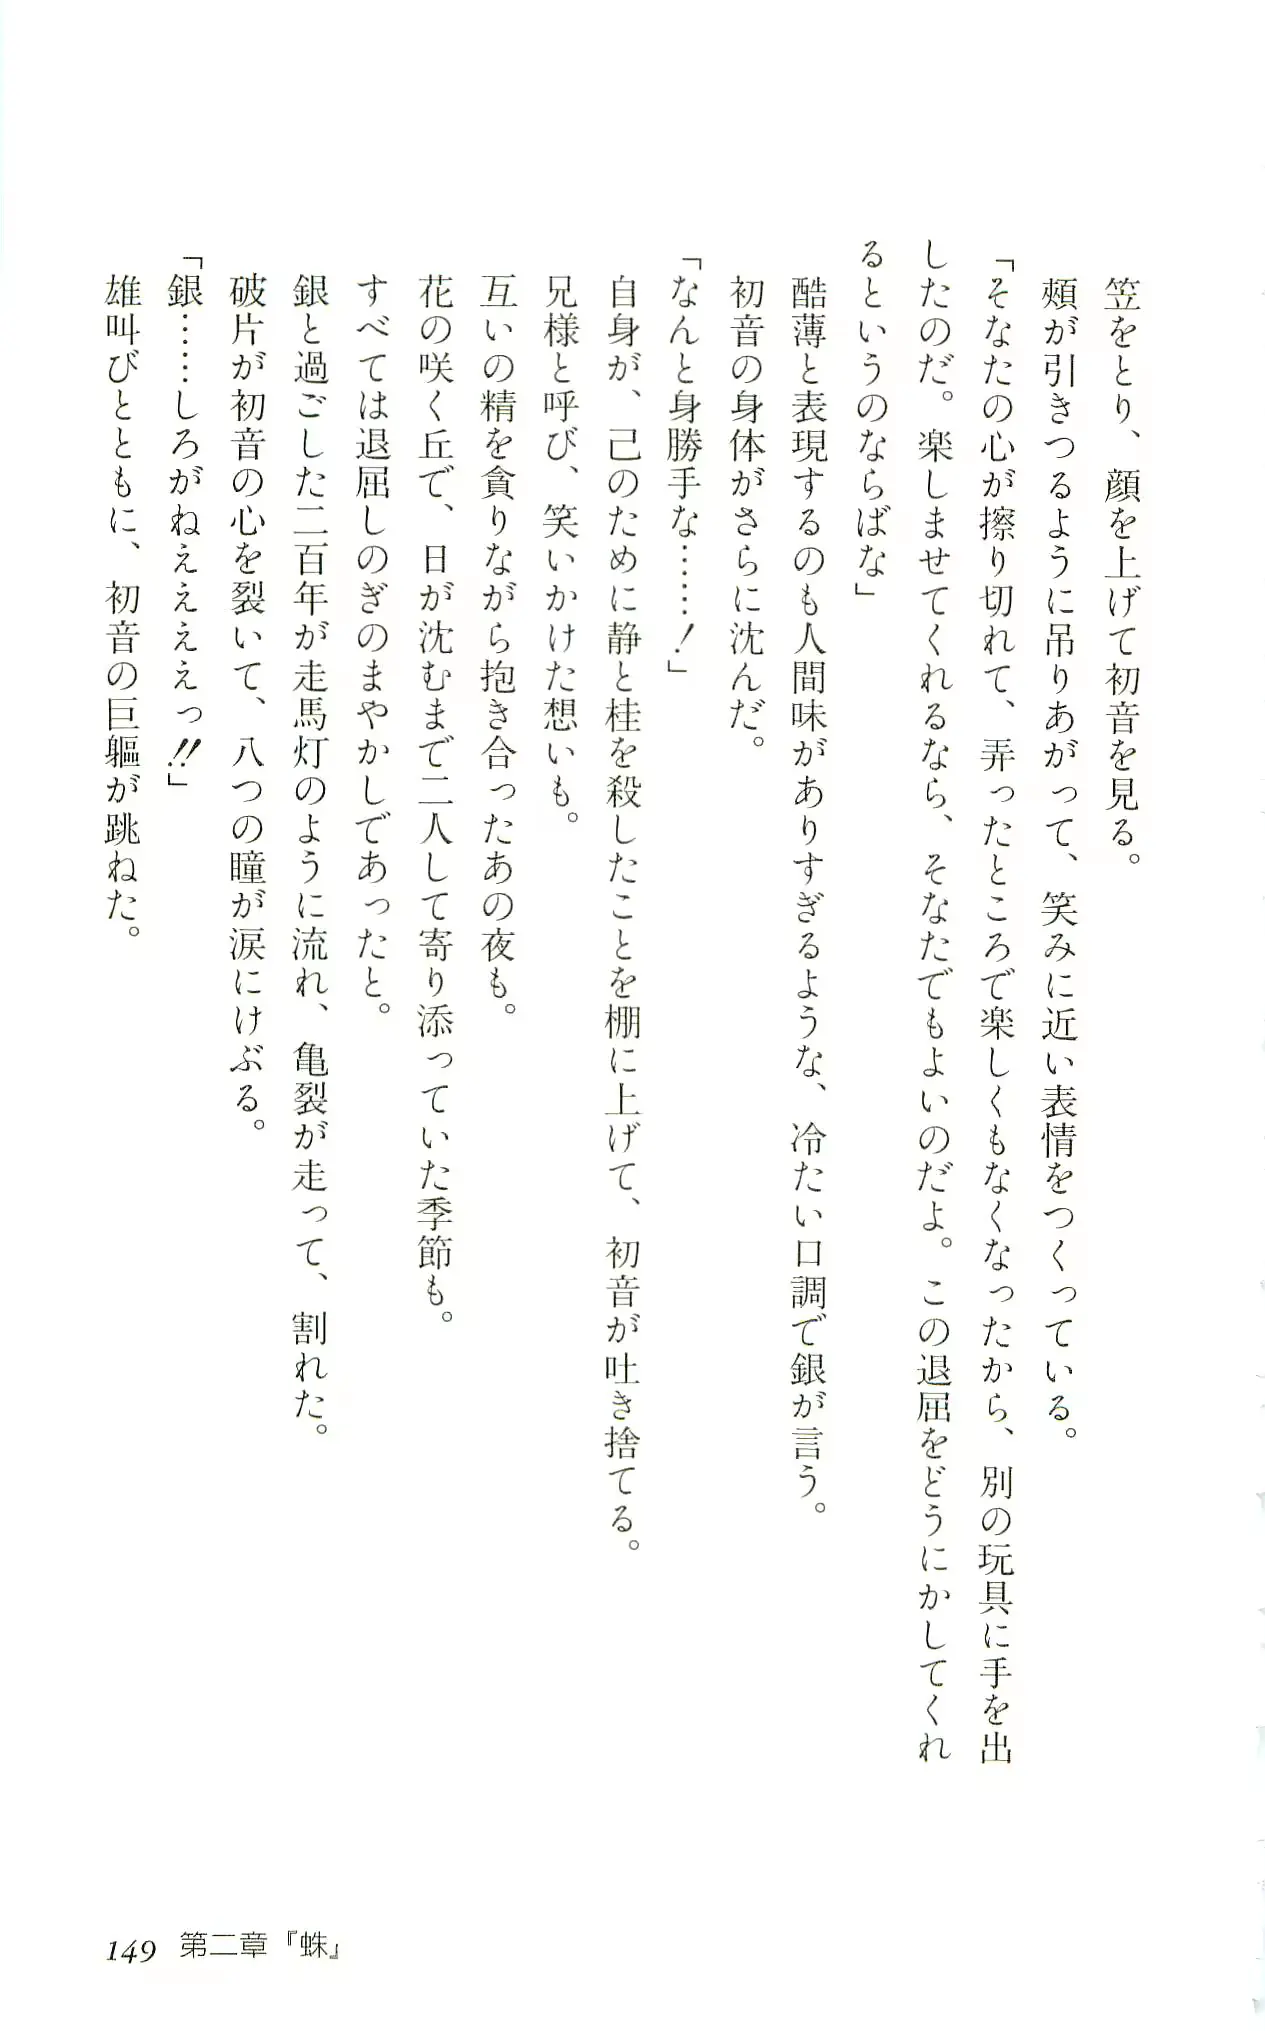 笠をとり、顔を上げて初音を見る。
頰が引きつるように吊りあがって、笑みに近い表情をつくっている。
「そなたの心が擦り切れて、弄ったところで楽しくもなくなったから、別の玩具に手を出
したのだ。楽しませてくれるなら、そなたでもよいのだよ。この退屈をどうにかしてくれ
るというのならばな」
酷薄と表現するのも人間味がありすぎるような、冷たい口調で銀が言う。
初音の身体がさらに沈んだ。
「なんと身勝手な……！」
自身が、己のために静と桂を殺したことを棚に上げて、初音が吐き捨てる。
兄様と呼び、笑いかけた想いも。
互いの精を貪りながら抱き合ったあの夜も。
花の咲く丘で、日が沈むまで二人して寄り添っていた季節も。
すべては退屈しのぎのまやかしであったと。
銀と過ごした二百年が走馬灯のように流れ、亀裂が走って、割れた。
破片が初音の心を裂いて、八つの瞳が涙にけぶる。
「銀……しろがねぇぇぇぇっ!!」
雄叫びとともに、初音の巨軀が跳ねた。
149 第二章『蛛』